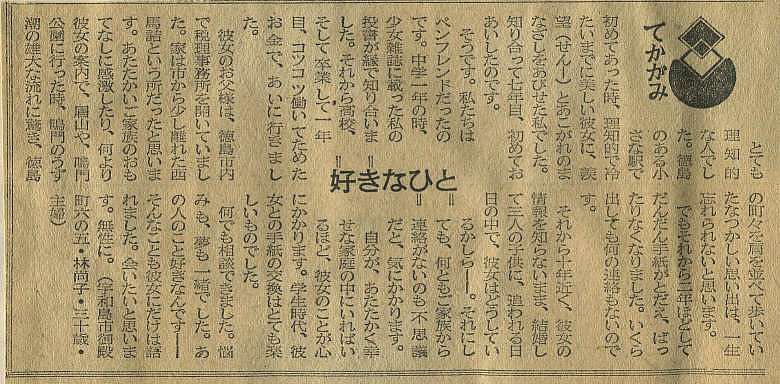 てかがみ
好きなひと
とても
理知的
な人でし
た。徳島
のある小
さな駅で
初めてあった時、理知的で冷
たいまでに美しい彼女に、羨
望（せんー）とあこがれのま
なざしをあびせた私でした。
知り合って七年目、初めてお
あいしたのです。
そうです。私たちは
ペンフレンドだったの
です。中学一年の時、
少女雑誌に載った私の
投書が縁で知り合いま
した。それから高校、
そして卒業して一年
目、コツコツ働いてためた
お金で、あいに行きまし
た。
彼女のお父様は、徳島市内
で税理事務所を開いていまし
た。家は市から少し離れた西
馬詰という所だったと思いま
す。あたたかいご家族のおも
てなしに感激したり、何より
彼女の案内で、眉山や、鳴門
公園に行った時、鳴門のうず
潮の雄大な流れに驚き、徳島
の町々を肩を並べて歩いてい
たなつかしい思い出は、一生
忘れられないと思います。
でもそれから二年ほどして
だんだん手紙がとだえ、ぱっ
たりなくなりました。いくら
出しても何の連絡もないので
す。
それから十年近く、彼女の
情報を知らないまま、結婚し
て三人の子供に、追われる日
日の中で、彼女はどうしてい
るかしら――。それにし
ても、何ともご家族から
連絡がないのも不思議
だと、気にかかります。
自分が、あたたかく幸
せな家庭の中にいればい
るほど、彼女のことが心
にかかります。学生時代、彼
女との手紙の交換はとても楽
しいものでした。
何でも相談できました。悩
みも、夢も一緒でした。あ
の人のこと好きなんです――
そんなことも彼女にだけは話
れました。会いたいと思いま
す。無性に。（宇和島市御殿
町六の五・林尚子・三十歳・
主婦）